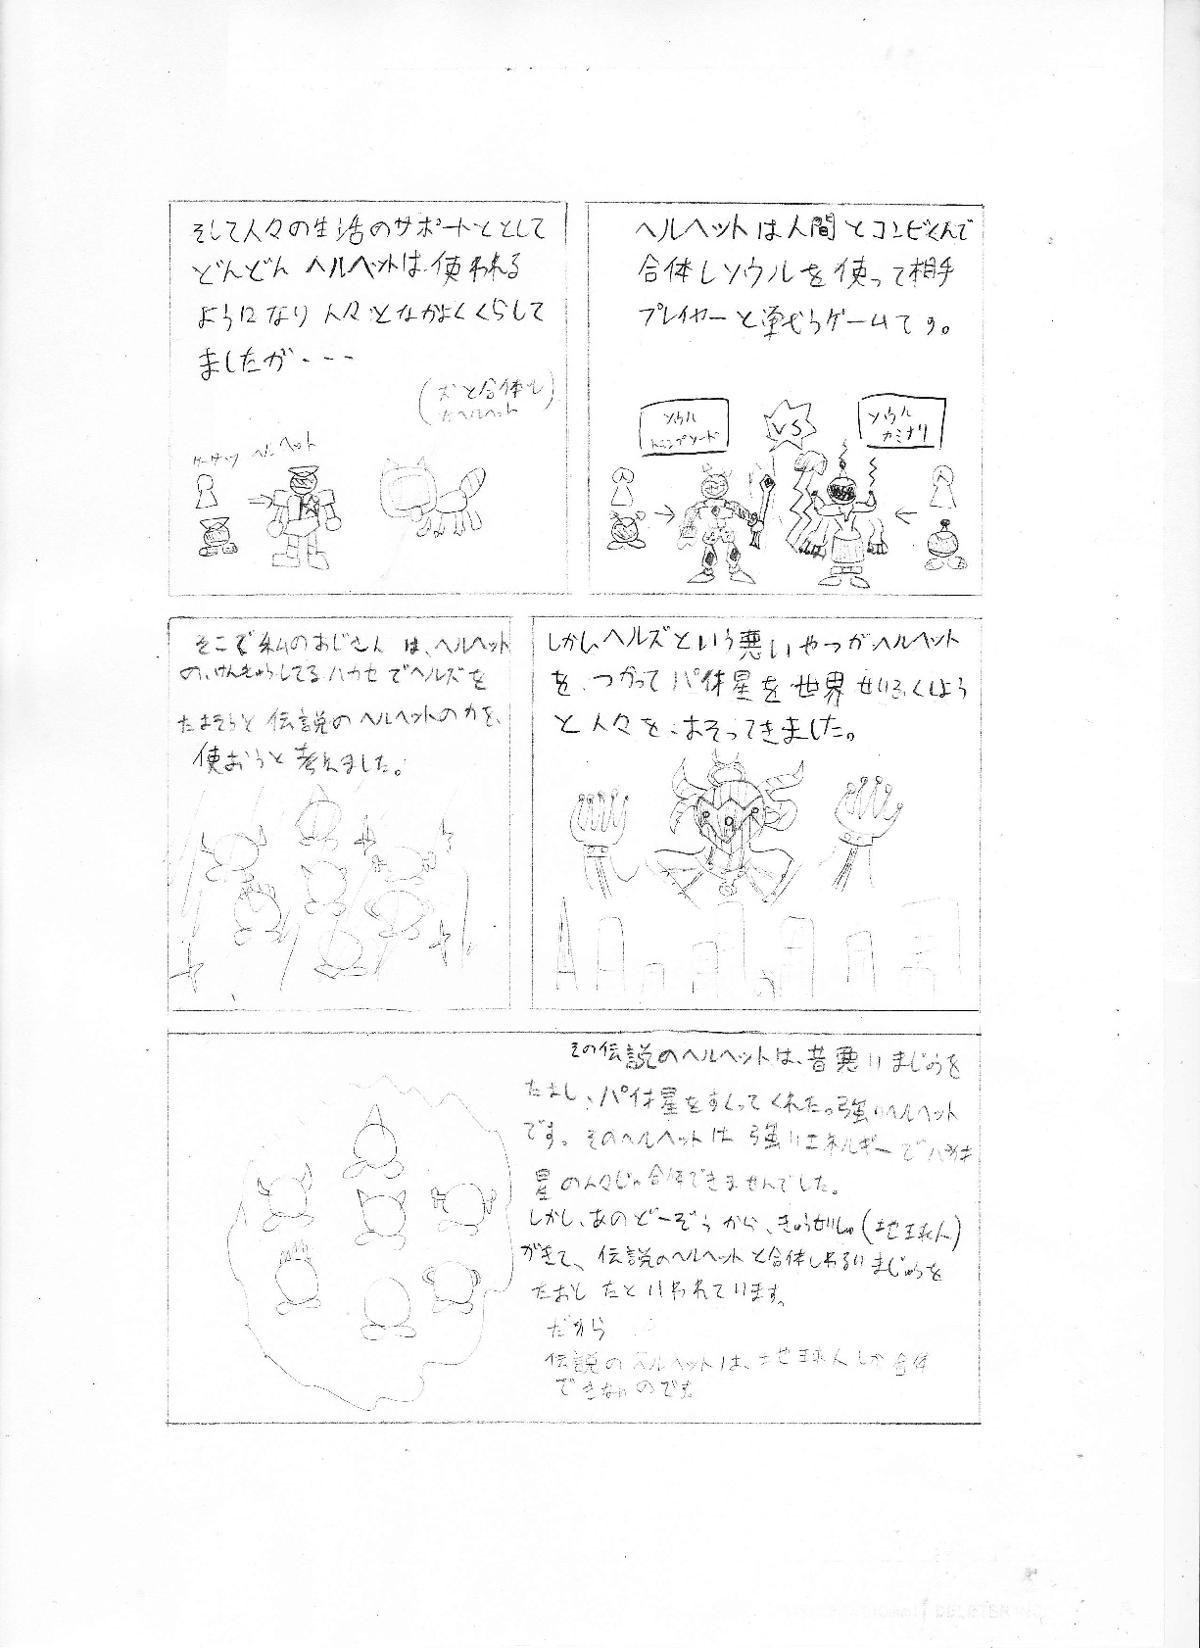 ヘルヘットは人間とコンビくんで
合体しソウルを使って相手
プレイヤーと戦うゲームです。
ソウル
トランプソード
VS
ソウル
カミナリ
そして人々の生活のサポートととして
どんどん ヘルヘットは使われる
ようになり 人々となかよくくらして
ましたが・・・
(犬と合体し
たヘルヘット)
ケーサツ ヘルヘット
しかしヘルズという悪いやつがヘルヘット
を、つかって パ体星を世界せいふくしよう
と人々を、おそってきました。
そこで私のおじさんは、ヘルヘット
の、けんきゅうしてるハカセでヘルズを
たおそうと伝説のヘルヘットの力を、
使おうと考えました。
その伝説のヘルヘットは、昔悪いまじゅうを
たおし、パ体星をすくってくれた 強いヘルヘット
です。そのヘルヘットは 強いエネルギーでパ体
星の人々じゃ合体できませんでした。
しかし、あのどーぞうから、きゅうせいしゅ(地球人)
がきて、伝説のヘルヘットと合体しわるいまじゅうを
たおしたといわれています。
だから
伝説のヘルヘットは、地球人しか合体
できないのです。
DELETER